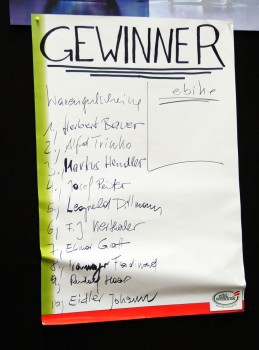 GEWINNER
Warengutscheine
ebike
1, Herbert Bauer
2, Alfred Trinko
3, Markus Hendler
4, Josef
5, Leopold Dillmann
6, F.J.
7, Elmar Graf
8, Ferdinand
9, Rudolf Haas
10, Eidler Johann